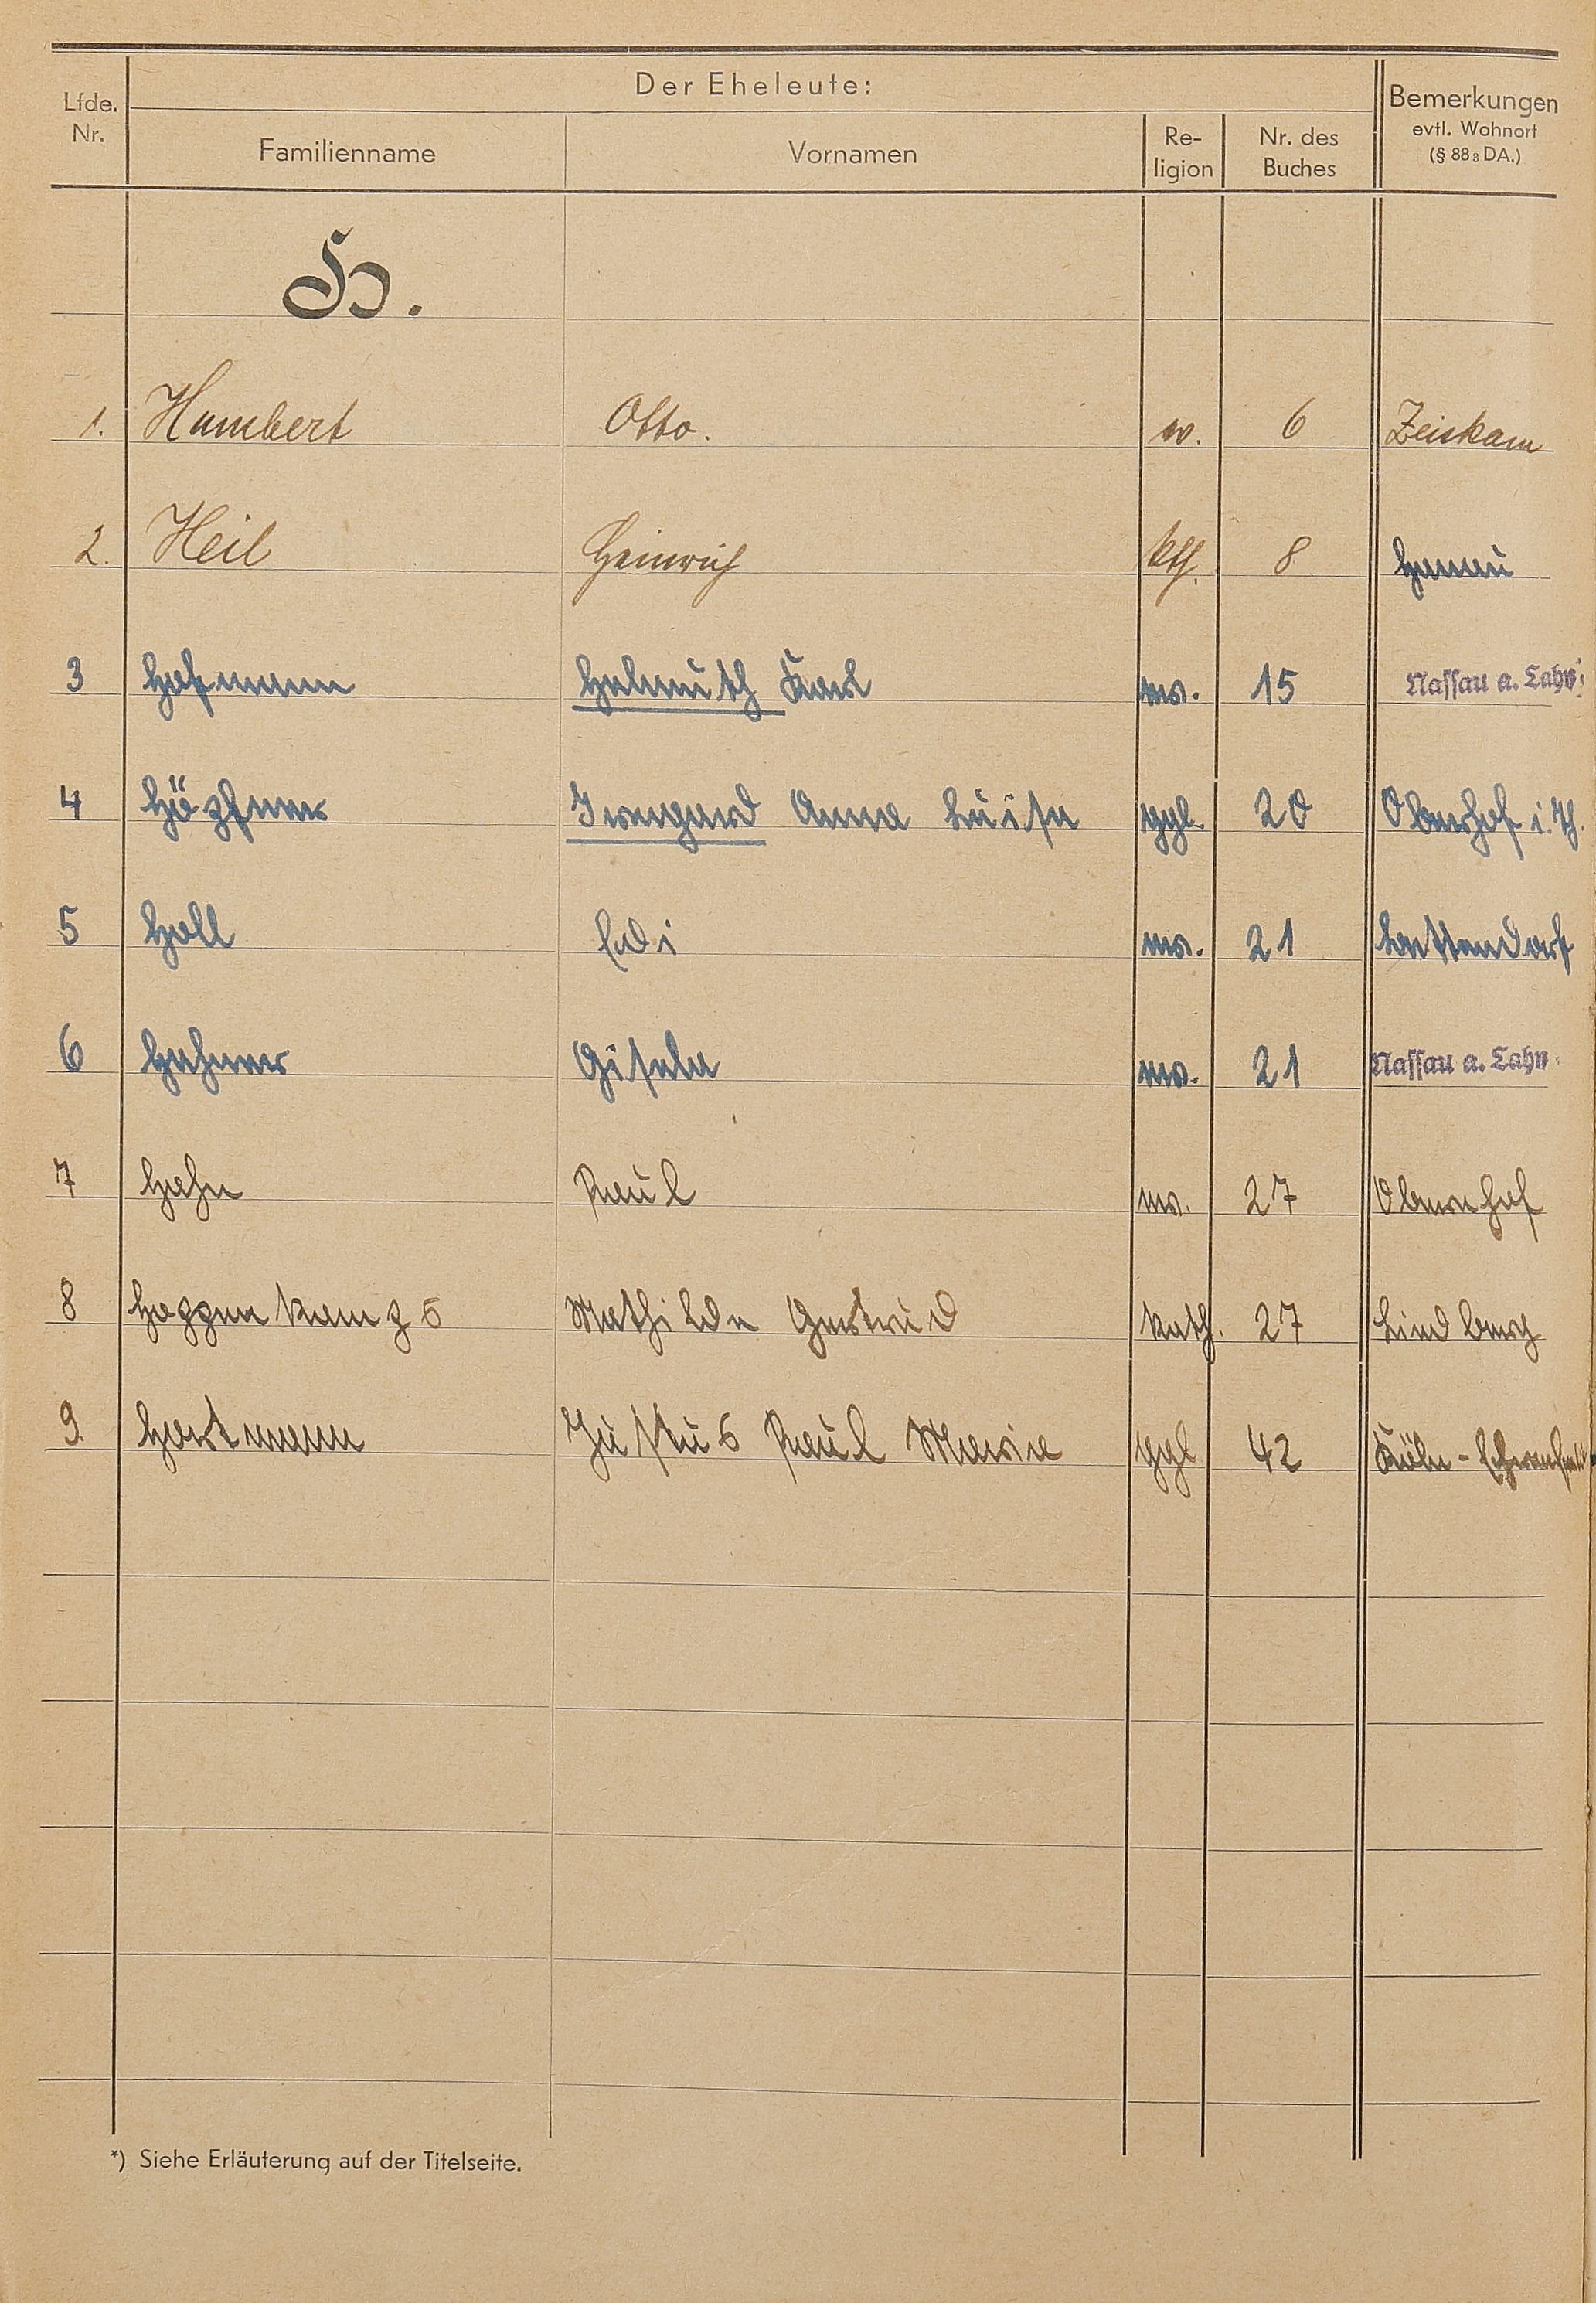 Der Eheleute:
Lfde. Nr. Familienname Vornamen Re- ligion Nr. des Buches Bemerkungen evtl. Wohnort (§ 88 8 DA.)
H.
1. Humbert Otto. ev. 6 Zeiskam
2. Heil Heinrich kth. 8 Hanau
3 Hofmann Helmuth Karl ev. 15 Nassau a. Lahn
4 Höpfner Irmgard Anna Luise ggl. 20 Oberhof i. Th.
5 Holl Edi ev. 21
6 Hafner Gisela ev. 21 Nassau a. Lahn
7 Hahn Paul ev. 27 Obernhof
8 Hoppenkamps Mathilde Gertrud kath. 27 Lindberg
9. Hartmann Justus Paul Maria ggl 42 Köln - Ehrenfeld
*) Siehe Erläuterung auf der Titelseite.